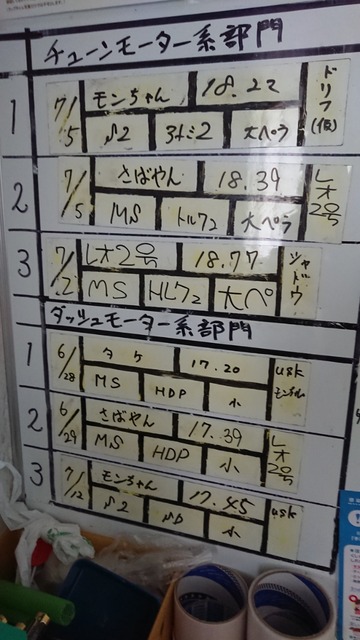 チューンモーター系部門
1 7/5 モンちゃん 18.22 ドリフ(仮)
S2 大ペラ
2 7/5 さばやん 18.39 レオ2号
MS トルク2 大ペラ
3 7/2 レオ2号 18.77
MS HLク2 大ペ
ダッシュモーター系部門
1 6/28 タケ 17.20 usk モンちゃん
MS HDP 小
2 6/29 さばやん 17.39 レオ2号
MS HDP 小
3 7/12 モンちゃん 17.45 usk
S2 小